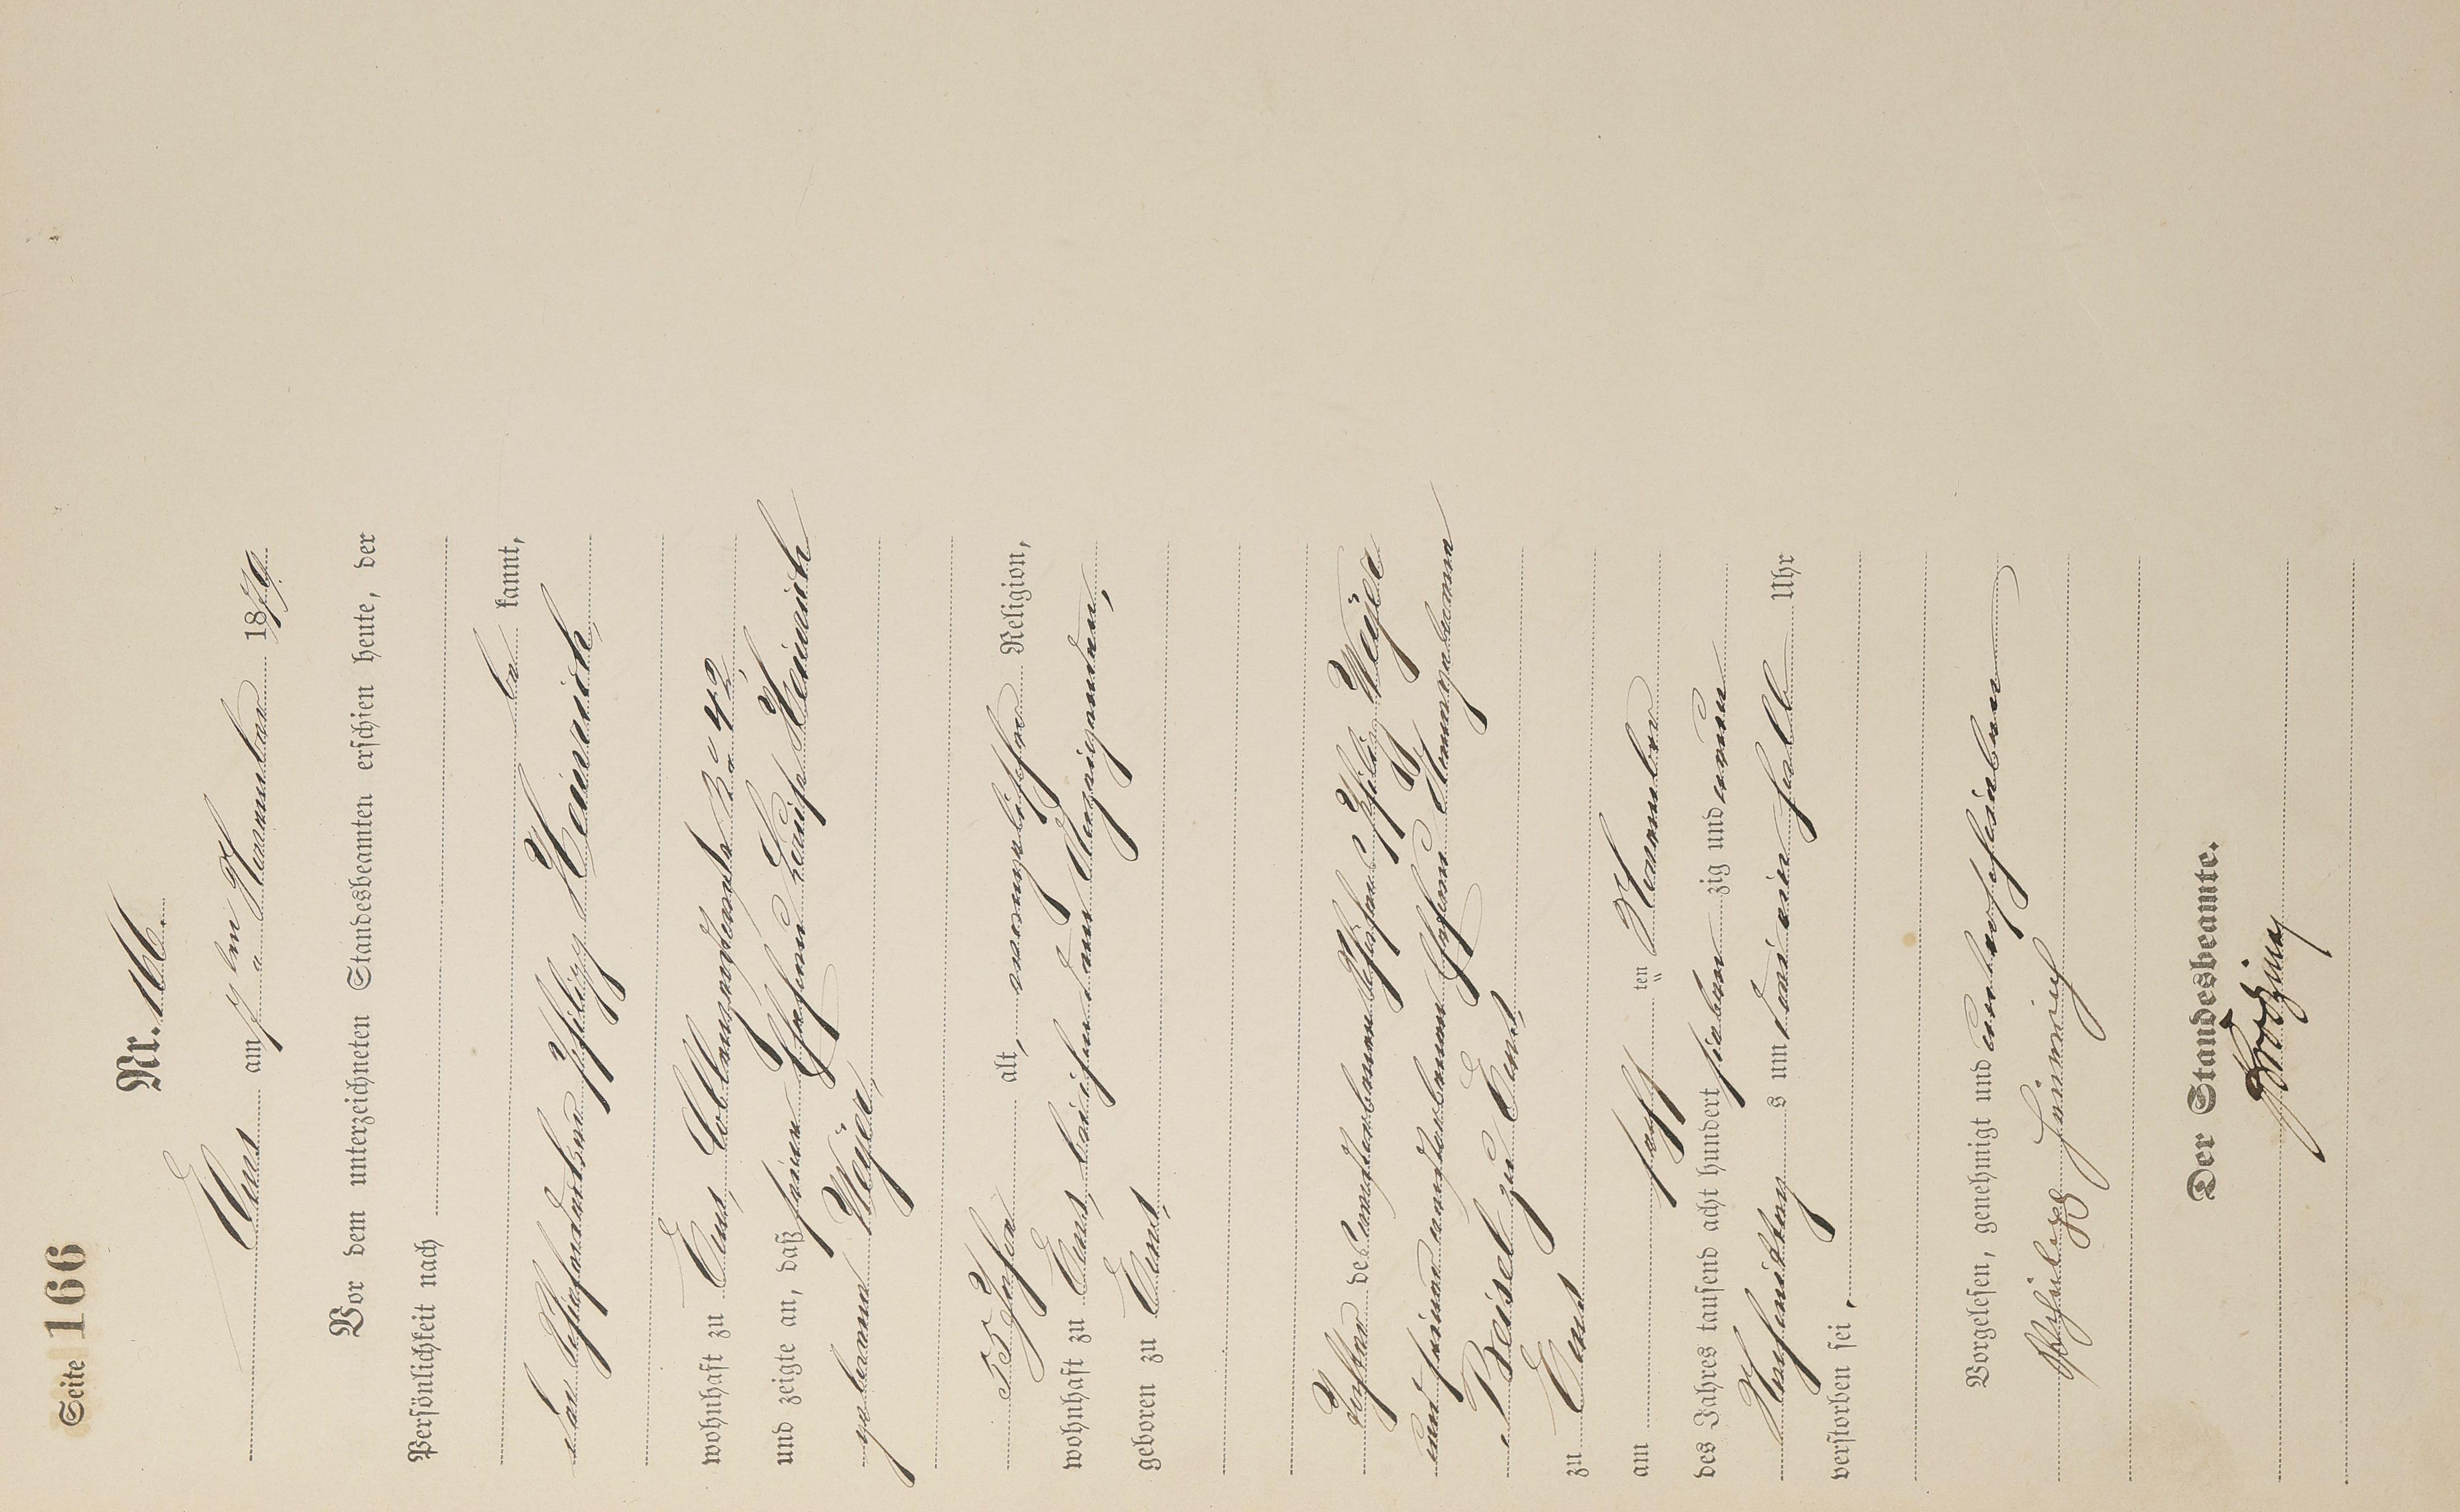 Seite 166
Nr. 166.
Ems am 7ten November 1879.
Vor dem unterzeichneten Standesbeamten erschien heute, der
Persönlichkeit nach
be kannt,
der Philipp Heinrich,
wohnhaft zu Ems, No 42,
und zeigte an, daß seine Ehefrau Louise Heinrich
geborene Weyer,
55 Jahre alt, evangelischer Religion,
wohnhaft zu Ems, bei ihm dem Anzeigenden,
geboren zu Ems,
Tochter des verstorbenen Philip Weyer
und seiner verstorbenen Ehefrau geborenen
Beisel zu Ems,
zu Ems
am sechs ten November
des Jahres tausend acht hundert sieben zig und neun
Nachmittags um drei ein halb Uhr
verstorben sei.
Vorgelesen, genehmigt und unterschrieben
Philipp Heinrich
Der Standesbeamte.